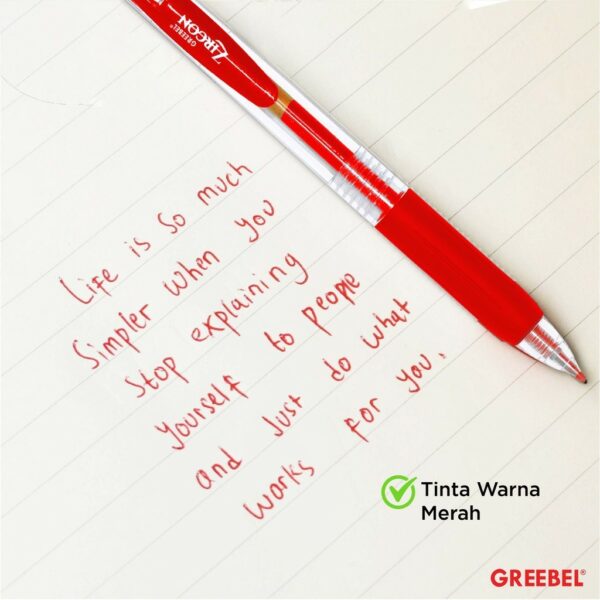 GREEBEL®
ZIRCON
Life is so much
Simpler when you
Stop explaining
yourself to people
and Just do what
works for you.
Tinta Warna
Merah
GREEBEL®